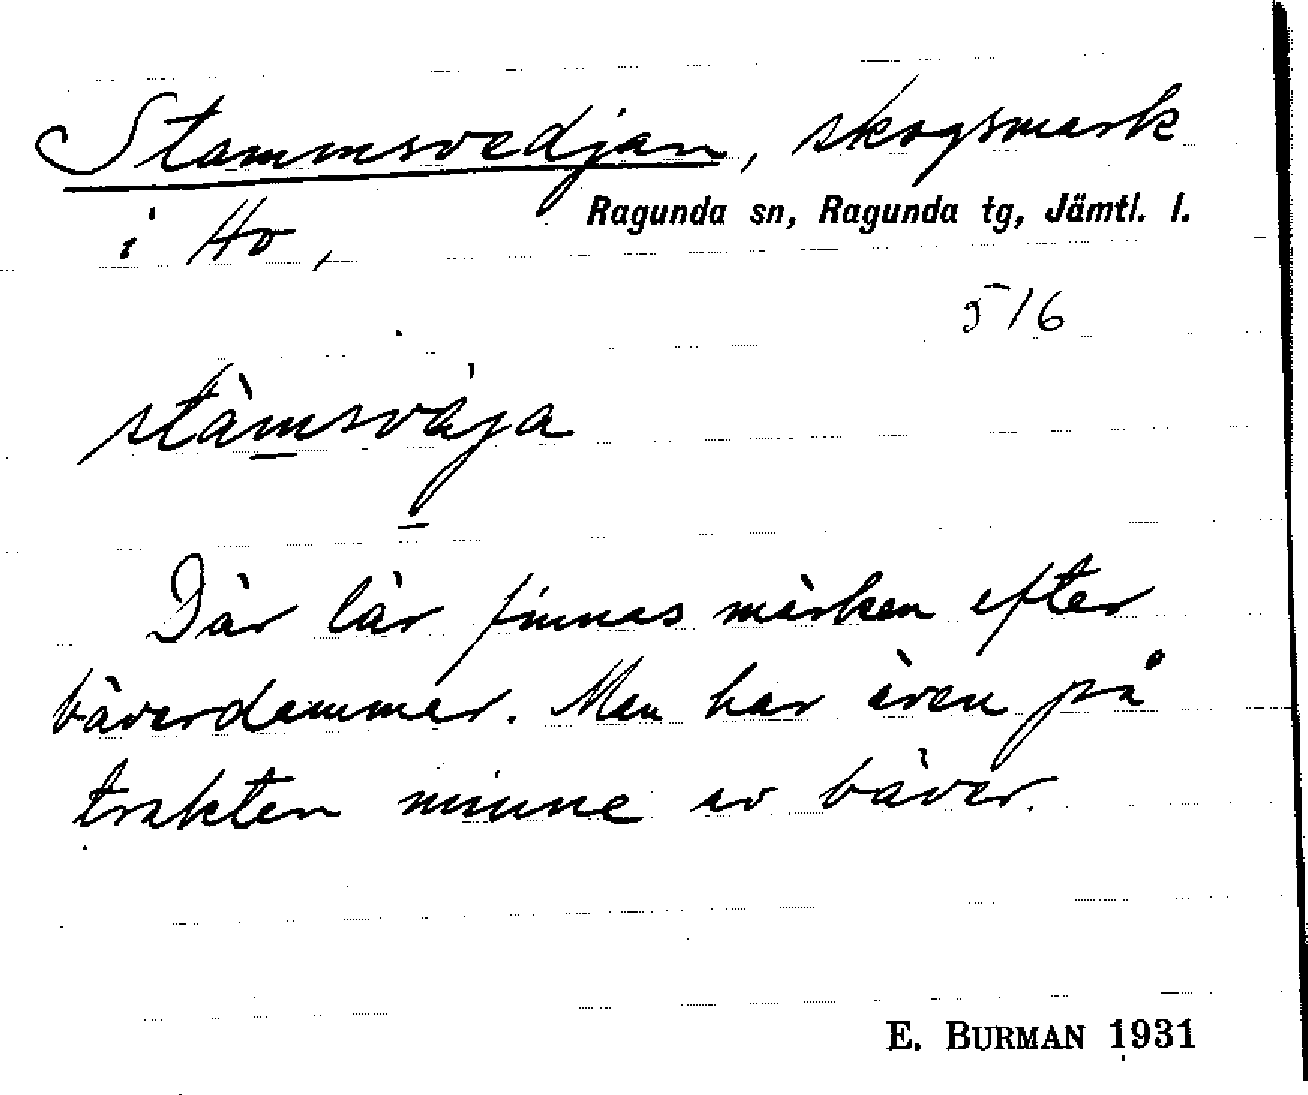 Stammsvedjan, skogsmark
Ragunda sn, Ragunda tg, Jämtl. l.
i Ho,
516
stàmsvàja
Där lär finnas märken efter
bäverdammar. Man har även på
trakten minne av bäver.
E. BURMAN 1931